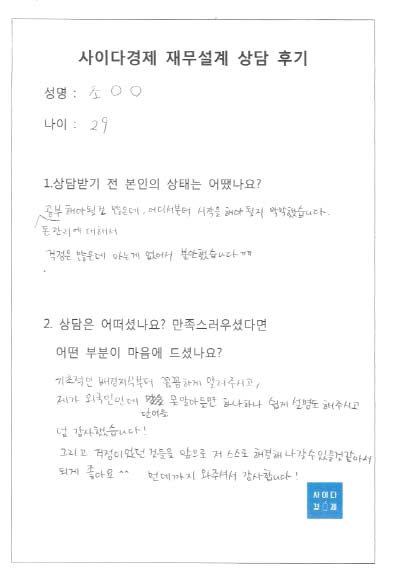 사이다경제 재무설계 상담 후기
성명 : 조 O O
나이 : 29
1.상담받기 전 본인의 상태는 어땠나요?
공부해야될건 많은데, 어디서부터 시작을 해야 될지 막막했습니다.
돈관리에 대해서
걱정은 많은데 아는게 없어서 불안했습니다 ㅠㅠ
2. 상담은 어떠셨나요? 만족스러우셨다면
어떤 부분이 마음에 드셨나요?
기초적인 배경지식부터 꼼꼼하게 알려주시고,
제가 외국인인데 못알아듣만 하나하나 쉽게 설명도 해주시고
단어를
넘 감사했습니다!
그리고 걱정이었던 것들을 앞으로 저 스스로 해결해 나갈수있을것같아서
되게 좋아요 ^^ 먼데까지 와주셔서 감사합니다!
사이다
경제